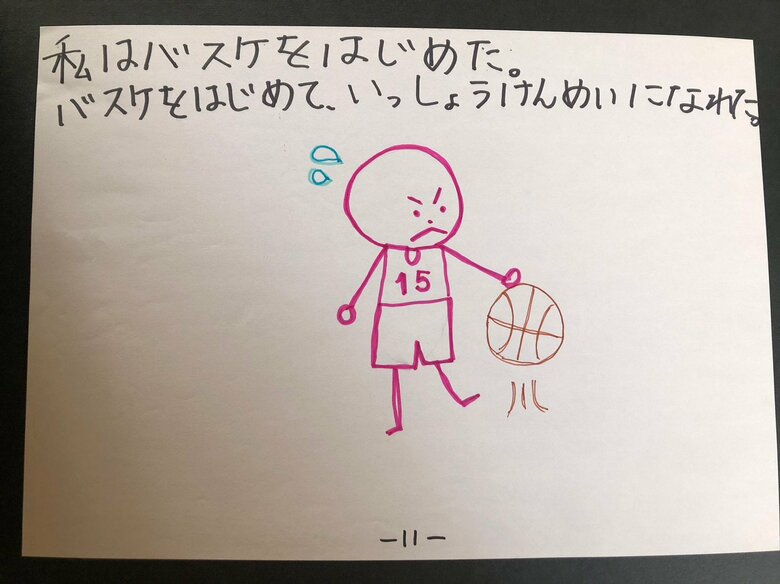 私はバスケをはじめた。
バスケをはじめて、いっしょうけんめいになれた。
15
-11-